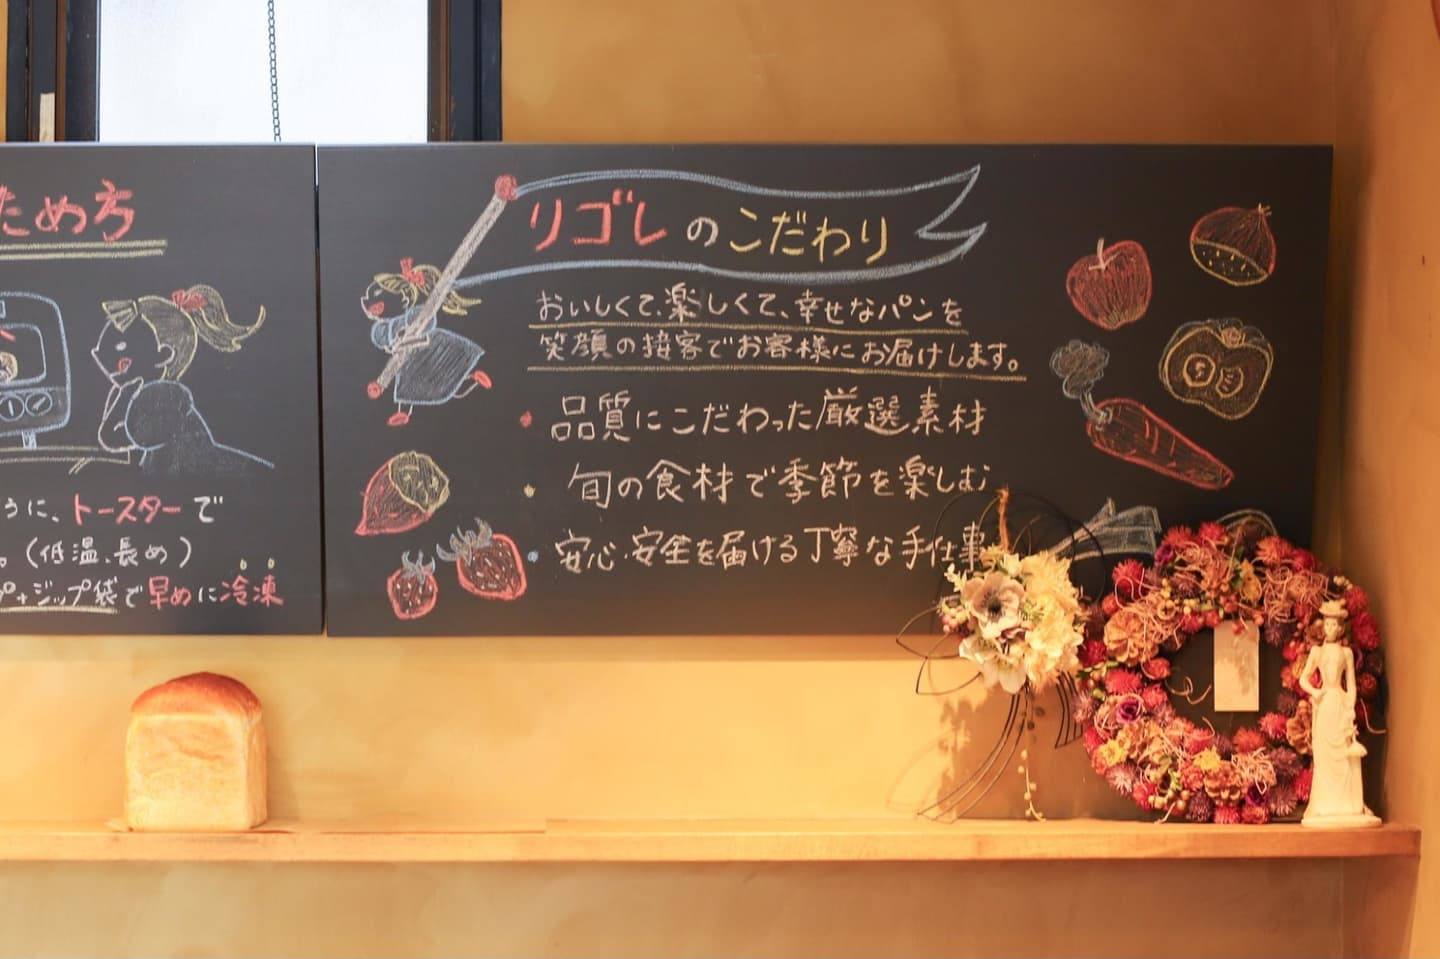 ためち
うに、トースターで
。(低温、長め)
プ+ジップ袋で早めに冷凍
リゴレのこだわり
おいしくて、楽しくて、幸せなパンを
笑顔の接客でお客様にお届けします。
品質にこだわった厳選素材
旬の食材で季節を楽しむ
安心・安全を届ける丁寧な手仕事